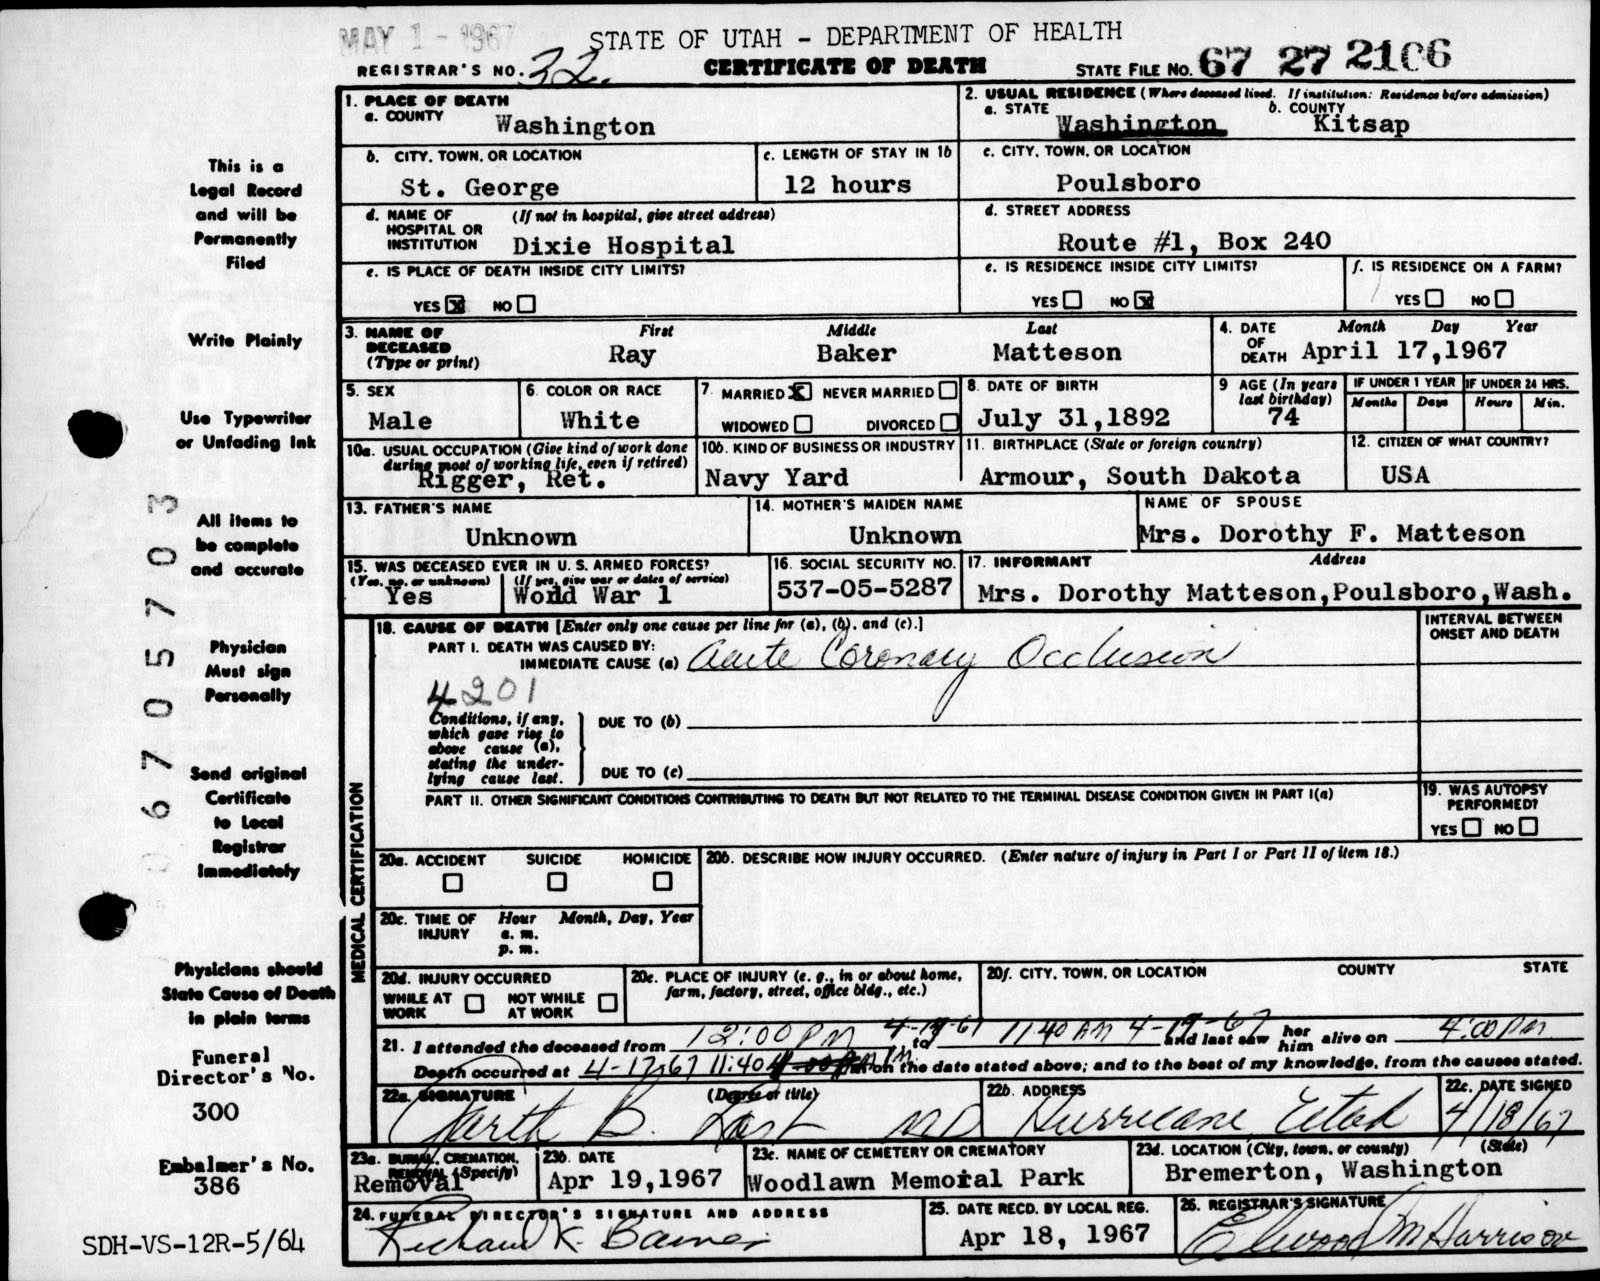 MAY 1 - 1967
STATE OF UTAH - DEPARTMENT OF HEALTH
REGISTRAR'S NO. 32
CERTIFICATE OF DEATH
STATE FILE NO. 67 27 2106
1. PLACE OF DEATH
a. COUNTY Washington
2. USUAL RESIDENCE (Where deceased lived. If institution: Residence before admission)
a. STATE Washington b. COUNTY Kitsap
b. CITY, TOWN, OR LOCATION St. George
c. LENGTH OF STAY IN 1b 12 hours
c. CITY, TOWN, OR LOCATION Poulsboro
d. NAME OF HOSPITAL OR INSTITUTION (If not in hospital, give street address) Dixie Hospital
d. STREET ADDRESS Route #1, Box 240
e. IS PLACE OF DEATH INSIDE CITY LIMITS?
YES X NO
e. IS RESIDENCE INSIDE CITY LIMITS?
YES NO X
f. IS RESIDENCE ON A FARM?
YES NO
3. NAME OF DECEASED (Type or print)
First Middle Last
Ray Baker Matteson
4. DATE OF DEATH Month Day Year
April 17,1967
5. SEX Male
6. COLOR OR RACE White
7. MARRIED X NEVER MARRIED
WIDOWED DIVORCED
8. DATE OF BIRTH July 31,1892
9 AGE (In years last birthday) 74
IF UNDER 1 YEAR Months Days
IF UNDER 24 HRS. Hours Min.
10a. USUAL OCCUPATION (Give kind of work done during most of working life, even if retired)
Rigger, Ret.
10b. KIND OF BUSINESS OR INDUSTRY Navy Yard
11. BIRTHPLACE (State or foreign country) Armour, South Dakota
12. CITIZEN OF WHAT COUNTRY? USA
13. FATHER'S NAME Unknown
14. MOTHER'S MAIDEN NAME Unknown
NAME OF SPOUSE Mrs. Dorothy F. Matteson
15. WAS DECEASED EVER IN U. S. ARMED FORCES?
(Yes, no, or unknown) (If yes, give war or dates of service)
Yes World War 1
16. SOCIAL SECURITY NO. 537-05-5287
17. INFORMANT Address
Mrs. Dorothy Matteson,Poulsboro,Wash.
MEDICAL CERTIFICATION
18. CAUSE OF DEATH [Enter only one cause per line for (a), (b), and (c).]
INTERVAL BETWEEN ONSET AND DEATH
PART I. DEATH WAS CAUSED BY:
IMMEDIATE CAUSE (a) Acute Coronary Occlusion
4201
Conditions, if any, which gave rise to above cause (a), stating the underlying cause last.
DUE TO (b)
DUE TO (c)
PART II. OTHER SIGNIFICANT CONDITIONS CONTRIBUTING TO DEATH BUT NOT RELATED TO THE TERMINAL DISEASE CONDITION GIVEN IN PART I(a)
19. WAS AUTOPSY PERFORMED?
YES NO
20a. ACCIDENT SUICIDE HOMICIDE
20b. DESCRIBE HOW INJURY OCCURRED. (Enter nature of injury in Part I or Part II of item 18.)
20c. TIME OF INJURY Hour Month, Day, Year
a. m.
p. m.
20d. INJURY OCCURRED
WHILE AT WORK NOT WHILE AT WORK
20e. PLACE OF INJURY (e. g., in or about home, farm, factory, street, office bldg., etc.)
20f. CITY, TOWN, OR LOCATION COUNTY STATE
21. I attended the deceased from 12:00 PM 4-17-67 to 11:40 AM 4-17-67 and last saw her him alive on 4:00 PM
Death occurred at 4-17-67 11:40 m on the date stated above; and to the best of my knowledge, from the causes stated.
22a. SIGNATURE (Degree or title)
Garth B. Last MD
22b. ADDRESS Hurricane, Utah
22c. DATE SIGNED 4/18/67
23a. BURIAL, CREMATION, REMOVAL (Specify) Removal
23b. DATE Apr 19,1967
23c. NAME OF CEMETERY OR CREMATORY Woodlawn Memorial Park
23d. LOCATION (City, town, or county) (State)
Bremerton, Washington
24. FUNERAL DIRECTOR'S SIGNATURE AND ADDRESS
Richard K.
25. DATE RECD. BY LOCAL REG. Apr 18, 1967
26. REGISTRAR'S SIGNATURE
Elwood M Harrison
This is a
Legal Record
and will be
Permanently
Filed
Write Plainly
Use Typewriter
or Unfading Ink
All items to
be complete
and accurate
Physician
Must sign
Personally
Send original
Certificate
to Local
Registrar
Immediately
Physicians should
State Cause of Death
in plain terms
Funeral
Director's No.
300
Embalmer's No.
386
SDH-VS-12R-5/64
0 6 7 0 5 7 0 3